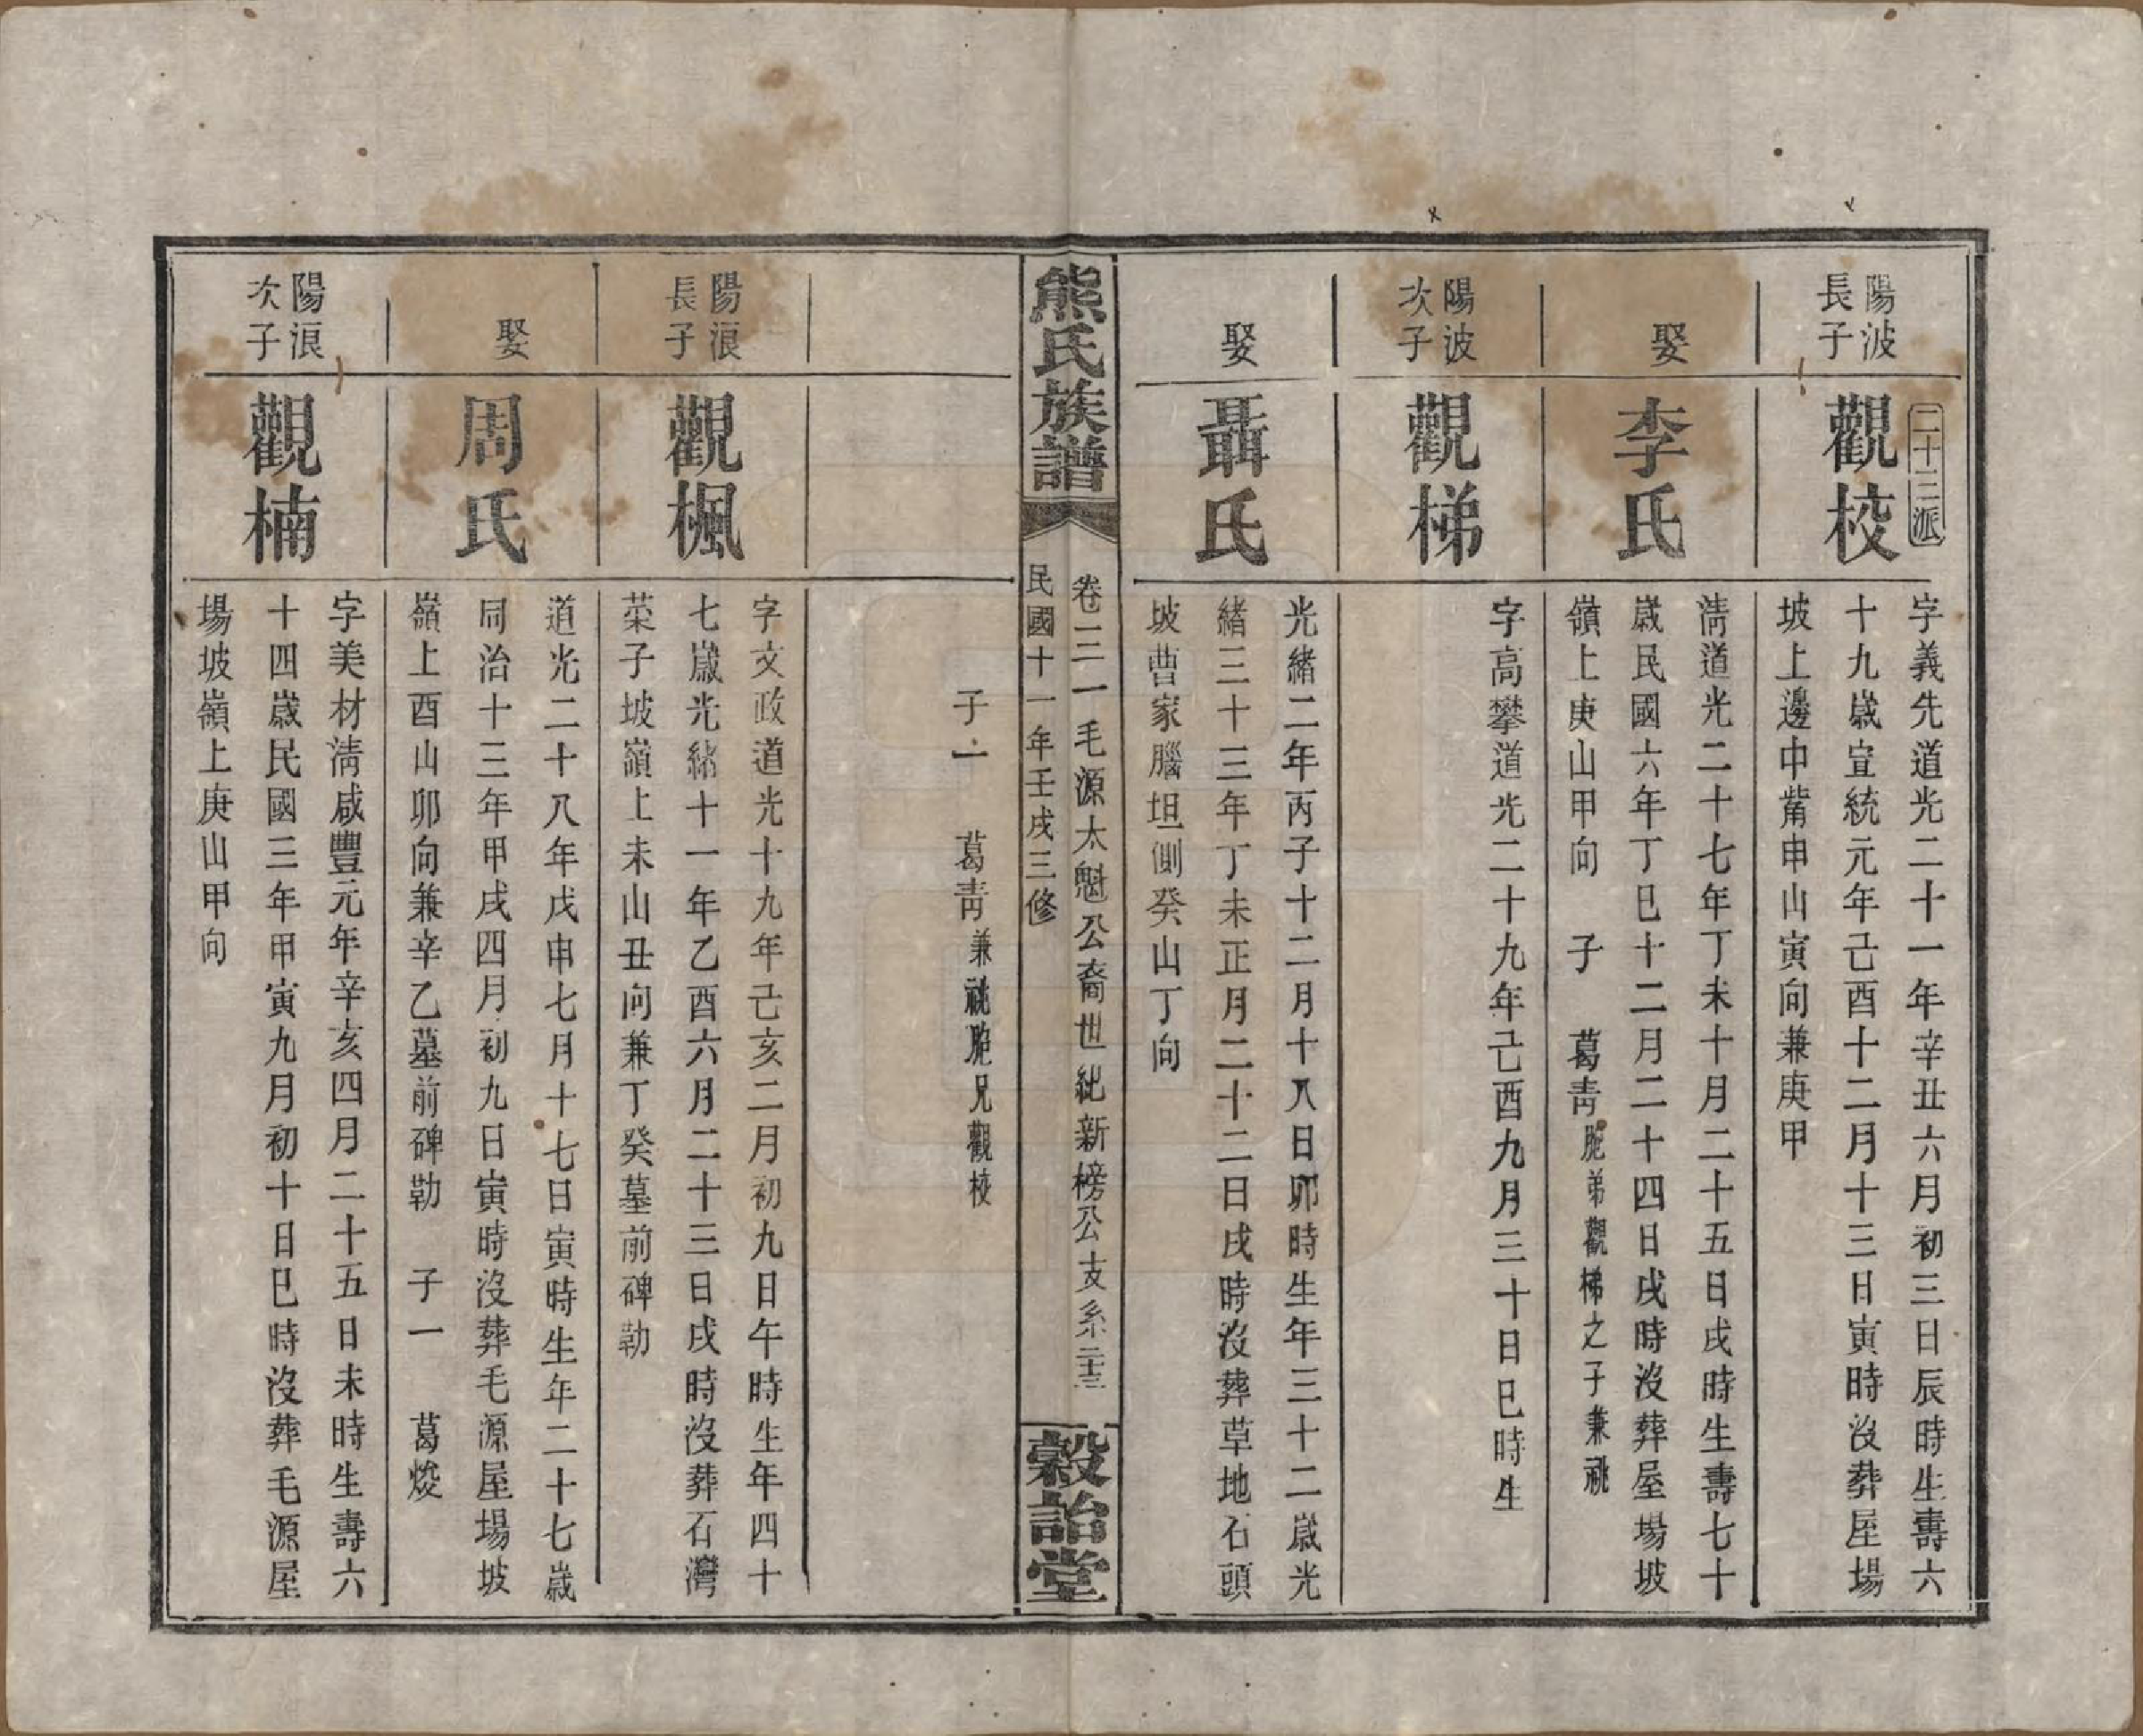 二十三派
陽波
長子
觀校
字義先道光二十一年辛丑六月初三日辰時生壽六
十九歲宣統元年己酉十二月十三日寅時沒葬屋場
坡上邊中觜申山寅向兼庚甲
娶
李氏
淸道光二十七年丁未十月二十五日戌時生壽七十
歲民國六年丁巳十二月二十四日戌時沒葬屋場坡
嶺上庚山甲向 子 葛靑胞弟觀梯之子兼祧
陽波
次子
觀梯
字高攀道光二十九年己酉九月三十日巳時生
娶
聶氏
光緒二年丙子十二月十八日卯時生年三十二歲光
緒三十三年丁未正月二十二日戌時沒葬草地石頭
坡曹家腦坦側癸山丁向
熊氏族譜
卷三一毛源太魁公裔世紪新榜公支系二十三
民國十一年壬戌三修
穀詒堂
子一 葛靑兼祧胞兄觀校
陽浪
長子
觀楓
字文政道光十九年己亥二月初九日午時生年四十
七歲光緒十一年乙酉六月二十三日戌時沒葬石灣
菜子坡嶺上未山丑向兼丁癸墓前碑勒
娶
周氏
道光二十八年戊申七月十七日寅時生年二十七歲
同治十三年甲戌四月初九日寅時沒葬毛源屋場坡
嶺上酉山卯向兼辛乙墓前碑勒 子一 葛焌
陽浪
次子
觀楠
字美材淸咸豐元年辛亥四月二十五日未時生壽六
十四歲民國三年甲寅九月初十日巳時沒葬毛源屋
場坡嶺上庚山甲向